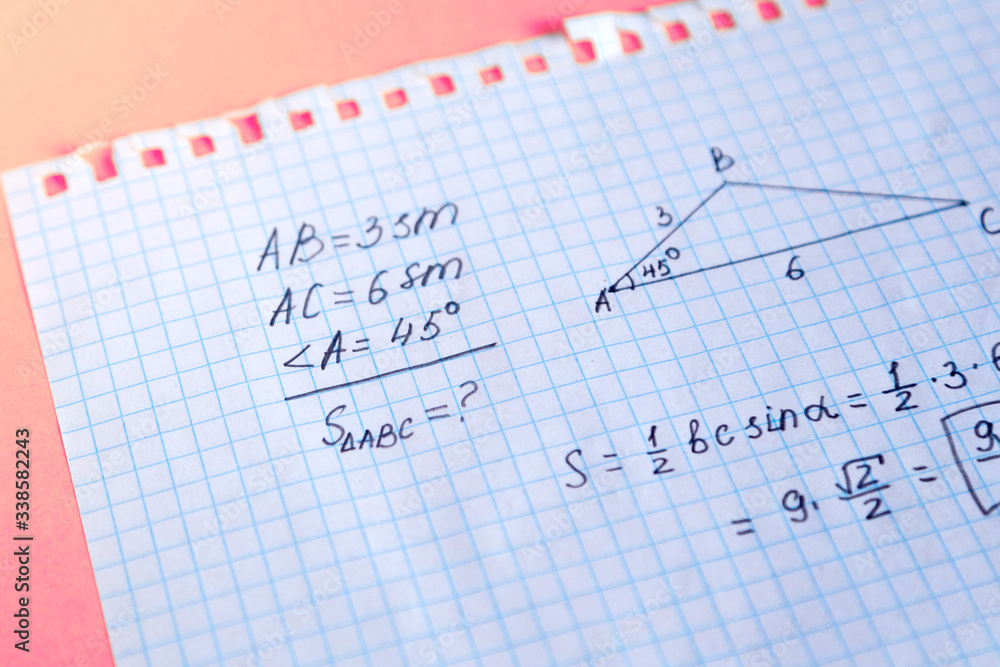 AB = 3 sm
AC = 6 sm
∠A = 45°
S△ABC = ?
B
3
45°
A
6
C
S = 1/2 bc sinα = 1/2 · 3 ·
= 9 · √2/2 = 9
Adobe Stock | #338582243